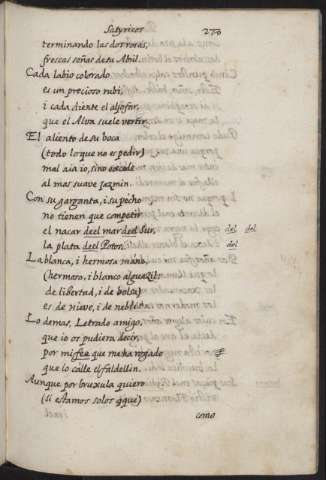 Satyricos 270
terminando las dos rosas,
frescas señas de su Abril.
Cada labio colorado
es un precioso rubi,
i cada diente el aljofar,
que el Alva suele vertir.
El aliento de su boca
(todo lo que no es pedir)
mal aia io, sino excede
al mas suave jazmin.
Con su garganta, i su pecho
no tienen que competir
el nacar deel mar deel Sur, del del
la plata deel Potosi. del
La blanca, i hermosa mano
(hermoso, i blanco alguazil
de libertad, i de bolsa)
es de nieve, i de neblí.
Lo demas, Letrado amigo,
que io os pudiera decir,
por mi fee que me ha rogado
que lo calle el faldellin.
Aunque por bruxula quiero
(si estamos solos aqui)
como